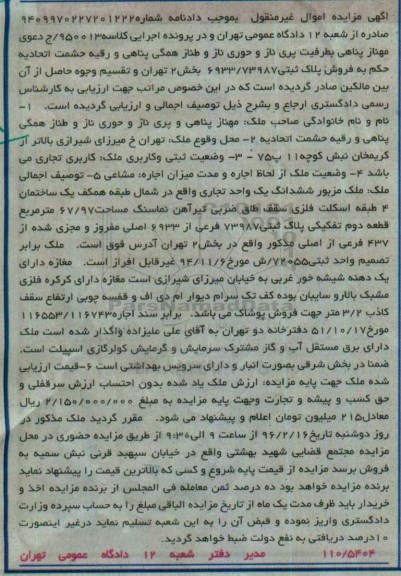 آگهی مزایده اموال غیرمنقول بموجب دادنامه شماره۹۴۰۹۹۷۰۲۲۷۲۰۱۲۲۲
صادره از شعبه ۱۲ دادگاه عمومی تهران و در پرونده اجرایی کلاسه۹۵۰۰۱۳/ج دعوی
مهناز پناهی بطرفیت پری ناز و حوری ناز و طناز همگی پناهی و رقیه حشمت اتحادیه
حکم به فروش پلاک ثبتی۶۹۳۳/۷۳۹۸۷ بخش۲ تهران و تقسیم وجوه حاصل از آن
بین مالکین صادر گردیده است که در این خصوص مراتب جهت ارزیابی به کارشناس
رسمی دادگستری ارجاع و بشرح ذیل توصیف اجمالی و ارزیابی گردیده است. ۱-
نام و نام خانوادگی صاحب ملک: مهناز پناهی و پری ناز و حوری ناز و طناز همگی
پناهی و رقیه حشمت اتحادیه ۲- محل وقوع ملک: تهران خ میرزای شیرازی بالاتر از
کریمخان نبش کوچه۱۱ پ۷۵ ۳- وضعیت ثبتی وکاربری ملک: کاربری تجاری می
باشد ۴- وضعیت ملک از لحاظ اجاره و مدت میزان اجاره: مشاعی ۵- توصیف اجمالی
ملک: ملک مزبور ششدانگ یک واحد تجاری واقع در شمال طبقه همکف یک ساختمان
۴ طبقه اسکلت فلزی سقف طاق ضربی تیرآهن نماسنگ مساحت۶۷/۹۷ مترمربع
قطعه دوم تفکیکی پلاک ثبتی۷۳۹۸۷ فرعی از ۶۹۳۳ اصلی مفروز و مجزی شده از
۴۳۷ فرعی از اصلی مذکور واقع در بخش۲ تهران آدرس فوق است. ملک برابر
تصمیم واحد ثبتی۷۲۰۵۵/ش مورخ۹۴/۱۱/۶ غیرقابل افراز است. مغازه دارای
یک دهنه شیشه خور غربی به خیابان میرزای شیرازی است مغازه دارای کرکره فلزی
مشبک بالارو سایبان بوده کف تک سرام دیوار ام دی اف و قفسه چوبی ارتفاع سقف
کاذب ۳/۲ متر جهت فروش پوشاک می باشد. برابر سند اجاره۱۱۶۵۵۳/۱۱۶۷۴۳
مورخ۵۱/۱۰/۱۷ دفترخانه دو تهران به آقای علی علیزاده واگذار شده است ملک
دارای برق مستقل آب و گاز مشترک سرمایش و گرمایش کولرگازی اسپیلت است.
ضمنا در بخش شرقی بصورت انبار و دارای سرویس بهداشتی است ۶-قیمت ارزیابی
شده ملک جهت پایه مزایده: ارزش ملک یاد شده بدون احتساب ارزش سرقفلی و
حق کسب و پیشه و تجارت وجهت پایه مزایده به مبلغ ۲/۱۵۰/۰۰۰/۰۰۰ ریال
معادل۲۱۵ میلیون تومان اعلام و پیشنهاد می شود. مقرر گردید ملک مذکور در
روز دوشنبه تاریخ۹۶/۲/۱۶ از ساعت ۹ الی۹:۳۰ از طریق مزایده حضوری در محل
مزایده مجتمع قضایی شهید بهشتی واقع در خیابان سپهبد قرنی نبش سمیه به
فروش برسد مزایده از قیمت پایه شروع و کسی که بالاترین قیمت را پیشنهاد نماید
برنده مزایده خواهد بود ده درصد ثمن معامله فی المجلس از برنده مزایده اخذ و
خریدار باید ظرف مدت یک ماه از تاریخ مزایده الباقی مبلغ را به حساب سپرده وزارت
دادگستری واریز نموده و قبض آن را به این شعبه تسلیم نماید درغیر اینصورت
۱۰درصد دریافتی به نفع دولت ضبط خواهد گردید.
۱۱۰/۵۴۰۴ مدیر دفتر شعبه ۱۲ دادگاه عمومی تهران